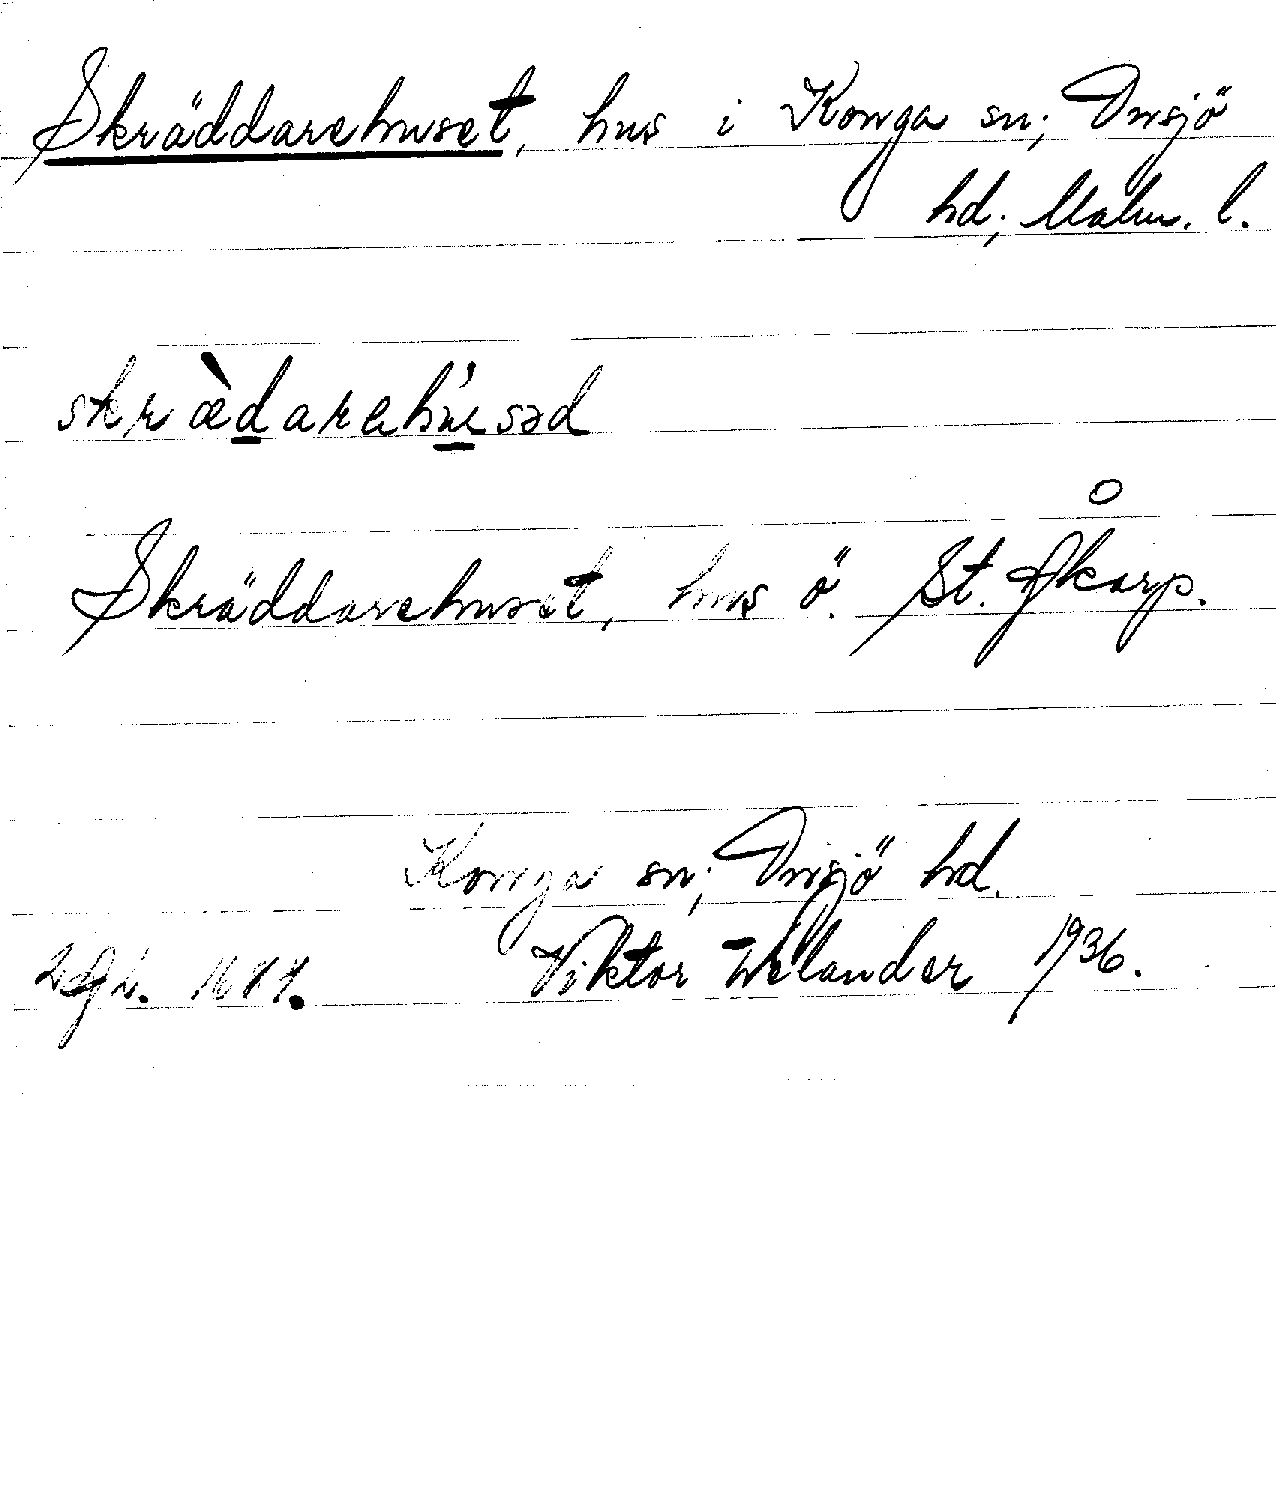 Skräddarehuset, hus i Konga sn; Onsjö
hd; Malm. l.
skrædarehusəd
Skräddarehuset, hus ö. St. Åkarp.
Konga sn; Onsjö hd.
Viktor Welander 1936.